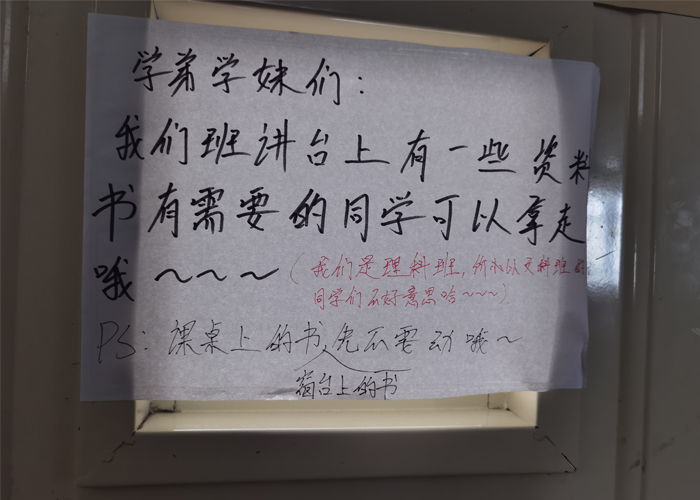 学弟学妹们:
我们班讲台上有一些资料
书有需要的同学可以拿走
哦~~~(我们是理科班,所以以文科班的
同学们不好意思哈~~~)
PS:课桌上的书,先不要动哦~
窗台上的书